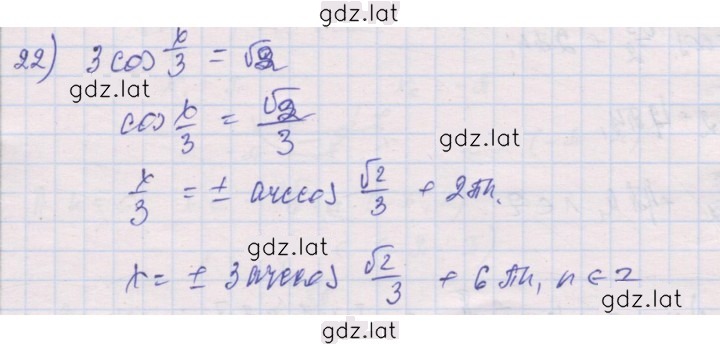 gdz.lat
22) 3 cos x/3 = √2
gdz.lat
cos x/3 = √2/3
gdz.lat
x/3 = ± arccos √2/3 + 2πn.
gdz.lat
x = ± 3 arccos √2/3 + 6πn, n ∈ Z
gdz.lat
gdz.lat